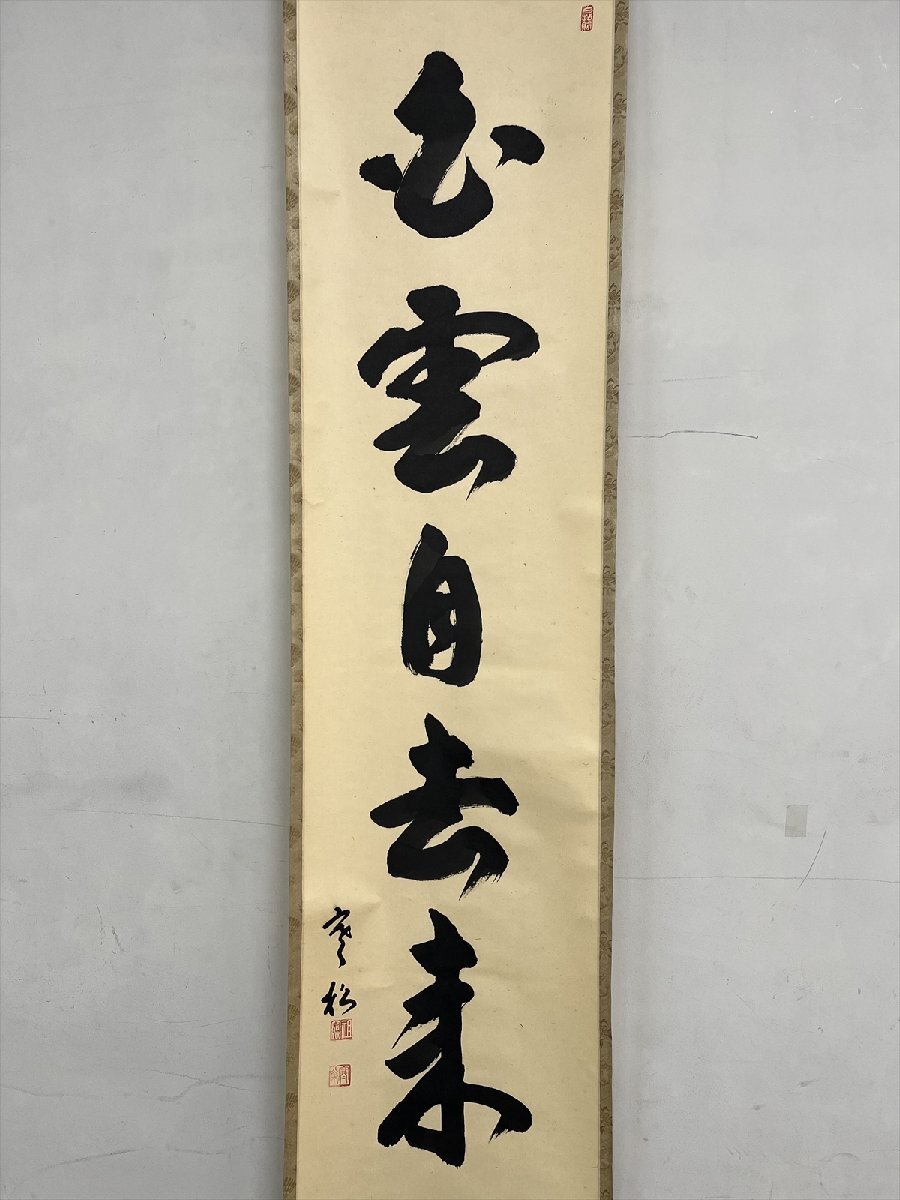 白雲自去来
寒松